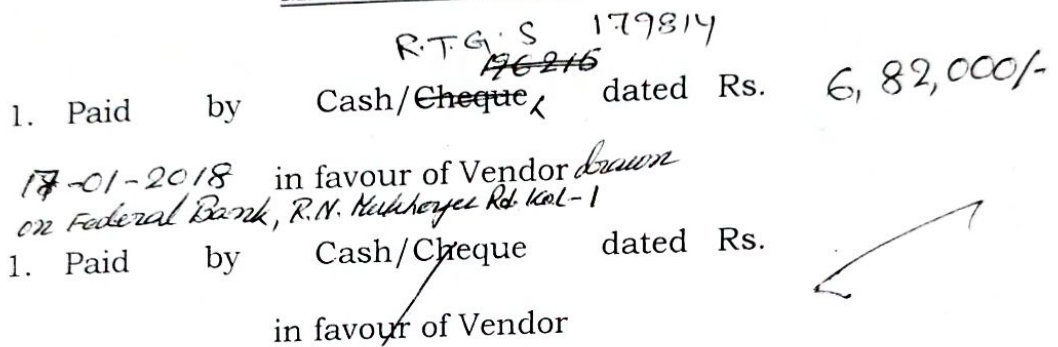 R.T.G.S 179814
196215
1. Paid by Cash/Cheque dated Rs. 6,82,000/-
17-01-2018 in favour of Vendor drawn
on Federal Bank, R.N. Mukherjee Rd. Kol-1
1. Paid by Cash/Cheque dated Rs.
in favour of Vendor